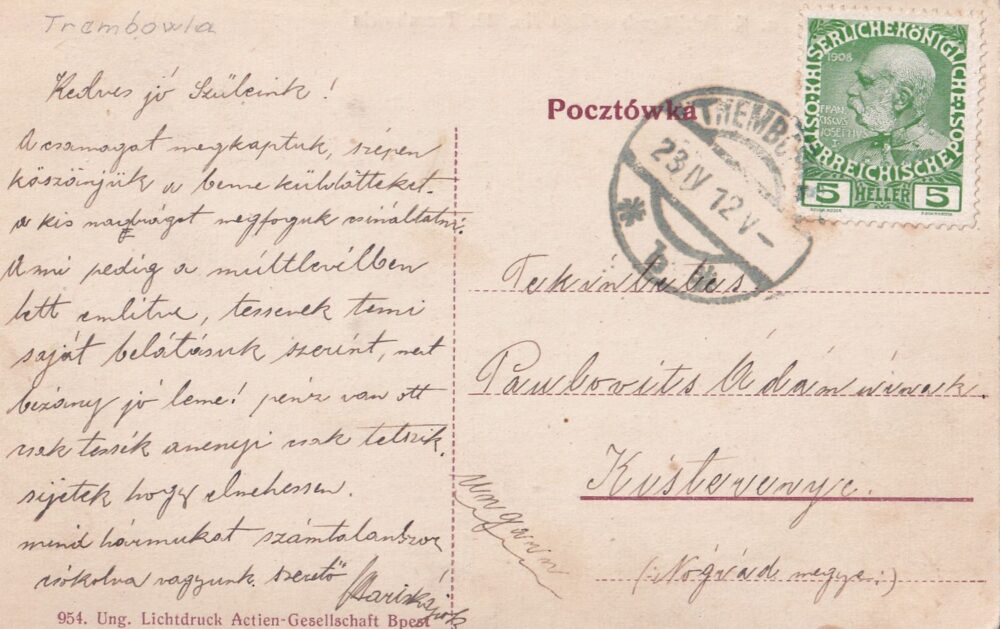 Trembowla
Kedves jó Szüleink!
A csamagat megkaptuk, szépen
köszönjük a benne küldötteket.
a kis nadrágot megfoguk csináltatni.
Ami pedig a múltlevélben
lett emlitve, tessenek tenni
saját belátásuk szerint, mert
bizony jó lenne! pénz van ott
csak tessék annenyi csak tetszik.
sijetek hogy elmehessen.
mind hármukat számtalanszor
csókolva vagyunk. szerető
Mariskájok
954. Ung. Lichtdruck Actien-Gesellschaft Bpest
Pocztówka
TREMBO
23 IV 12 V-
* b *
KAISERLICHE KÖNIGLICHE ÖSTERREICHISCHE POST
1908
FRANCISCVS JOSEPHVS I
5 HELLER 5
Tekintetes
Paulovits Ádám úrnak
Kisterenye.
Ungarn
(:Nógrád megye:)